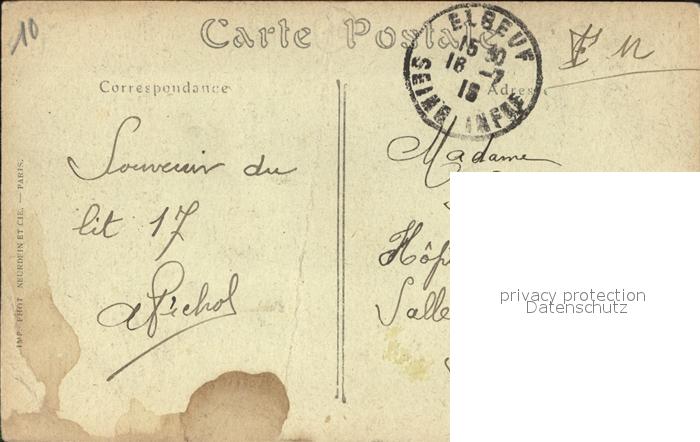 10
Carte Postale
ELBEUF
15 30
18 - 7
18
SEINE INFRE
F M
Correspondance
Adres
Souvenir du
lit 17
Madame
Hôp
Salle
IMP. PHOT. NEURDEIN ET CIE. — PARIS.
privacy protection
Datenschutz